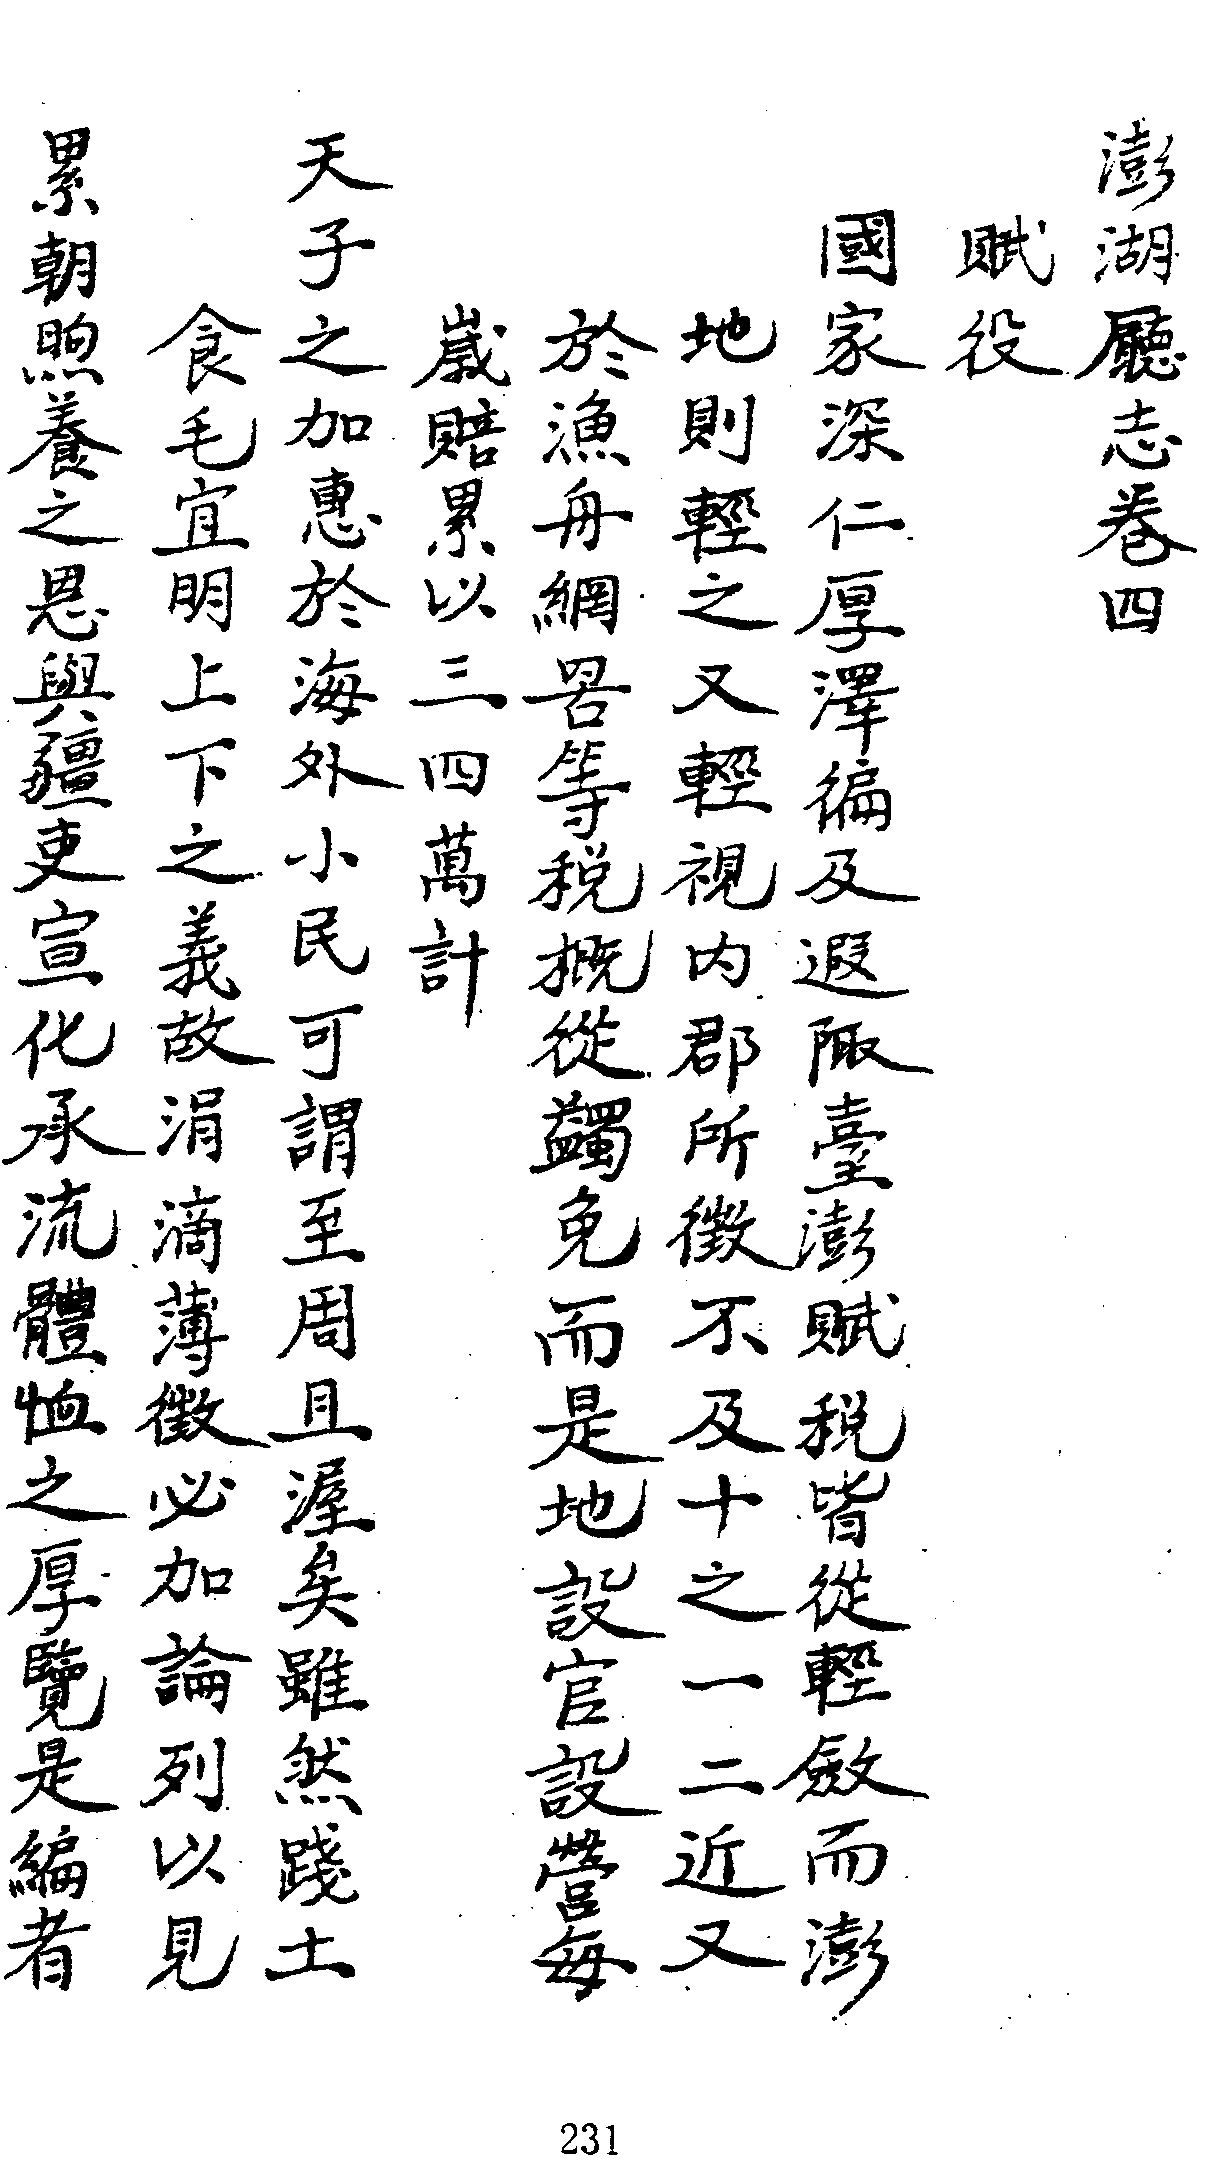 澎湖廳志卷四
賦役
國家深仁厚澤徧及遐陬臺澎賦稅皆從輕斂而澎
地則輕之又輕視內郡所徵不及十之一二近又
於漁舟網罟等稅概從蠲免而是地設官設營每
歲賠累以三四萬計
天子之加惠於海外小民可謂至周且渥矣雖然踐土
食毛宜明上下之義故涓滴薄徵必加論列以見
累朝煦養之恩與疆吏宣化承流體恤之厚覽是編者
231